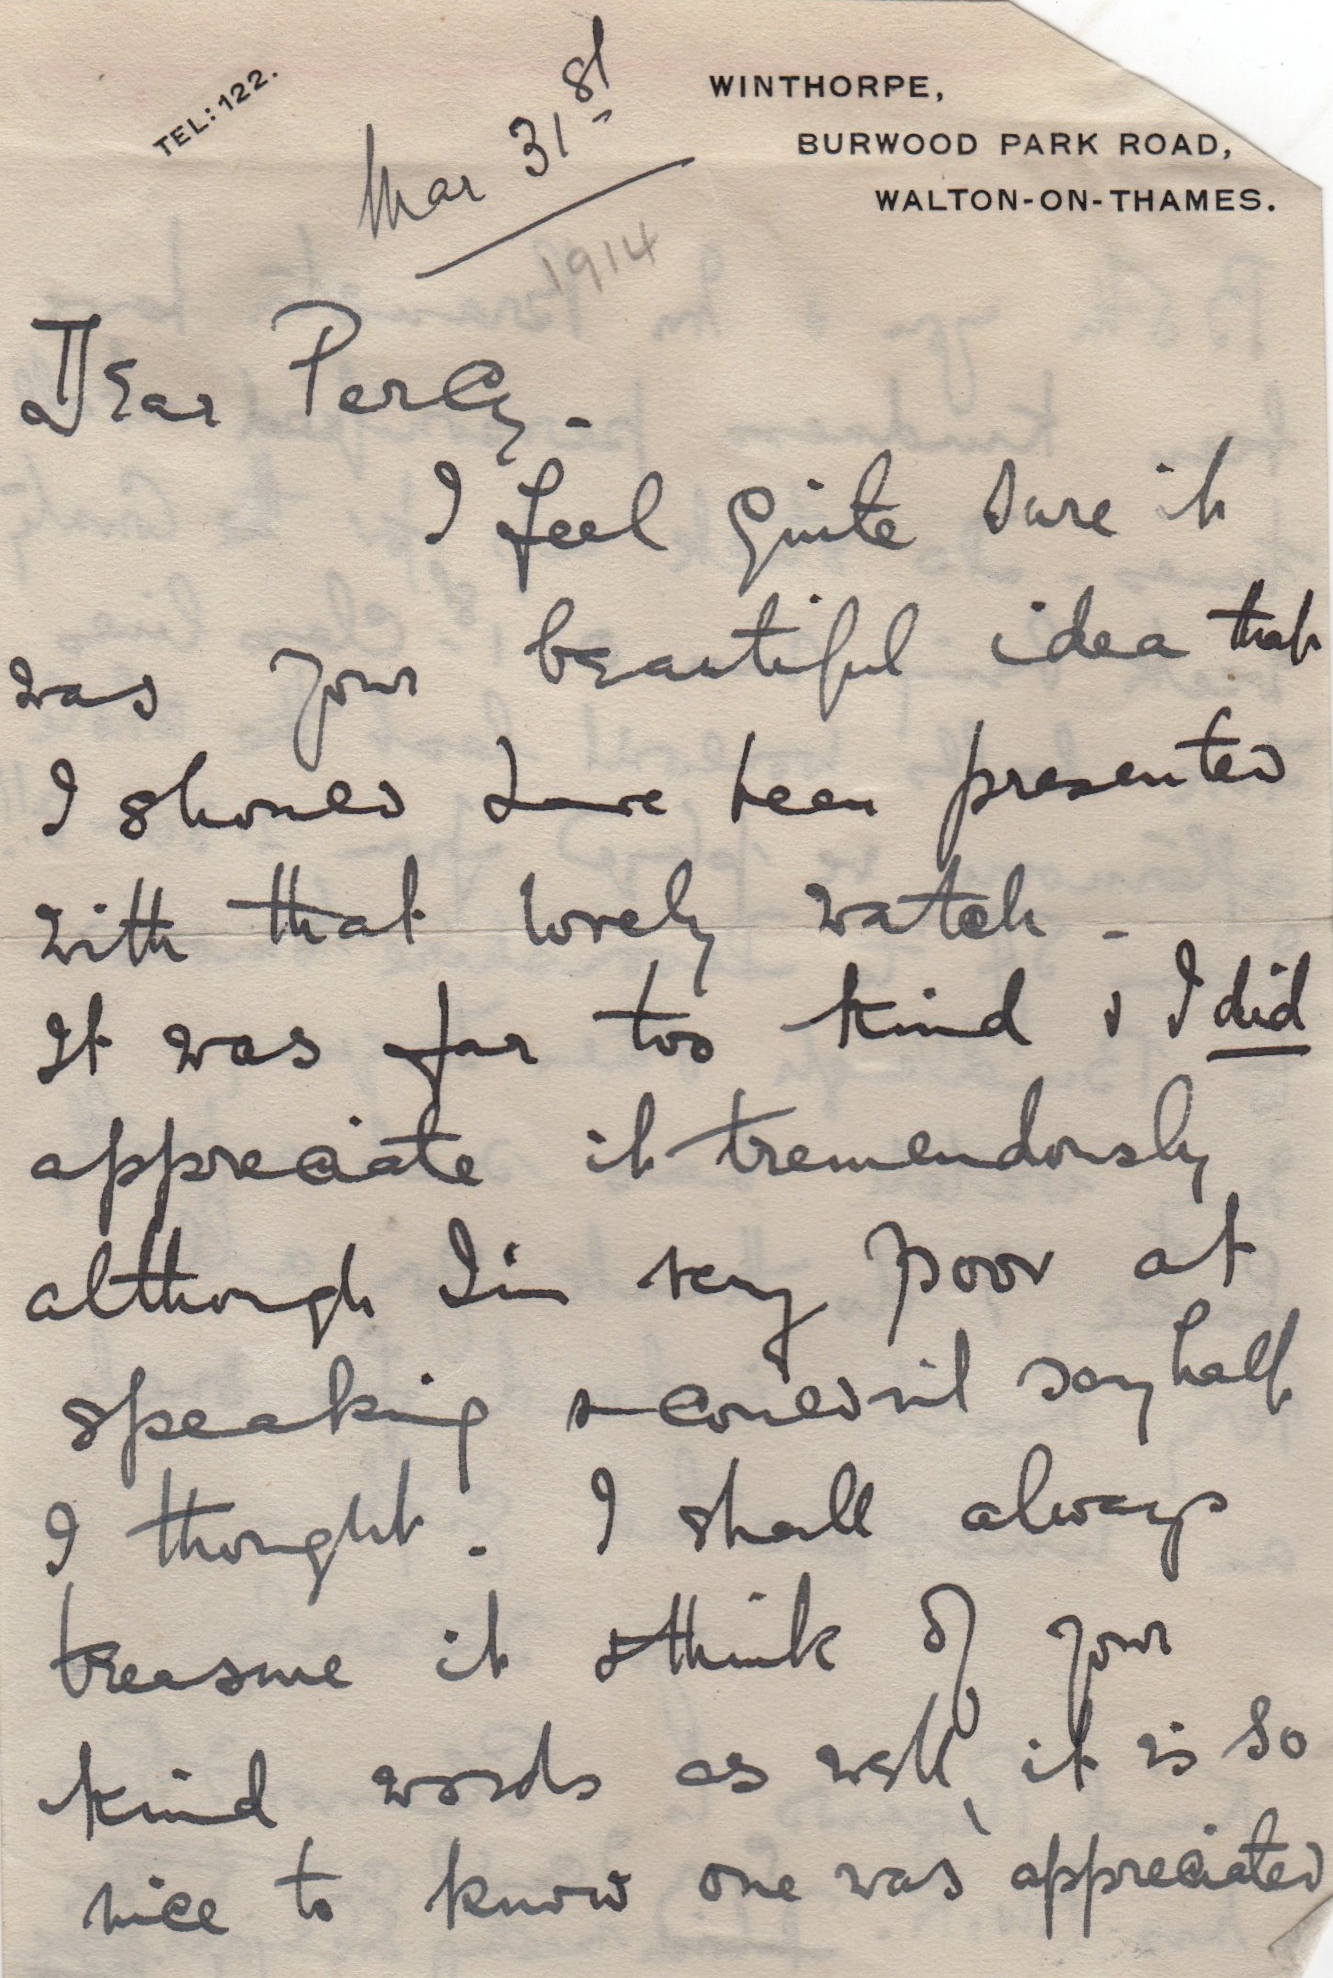 TEL: 122.
WINTHORPE,
BURWOOD PARK ROAD,
WALTON-ON-THAMES.
Mar 31st
1914
Dear Percy -
I feel quite sure it
was your beautiful idea that
I should have been presented
with that lovely watch -
It was far too kind & I did
appreciate it tremendously
although I'm very poor at
speaking & couldn't say half
I thought. I shall always
treasure it & think of your
kind words as well, it is so
nice to know one was appreciated